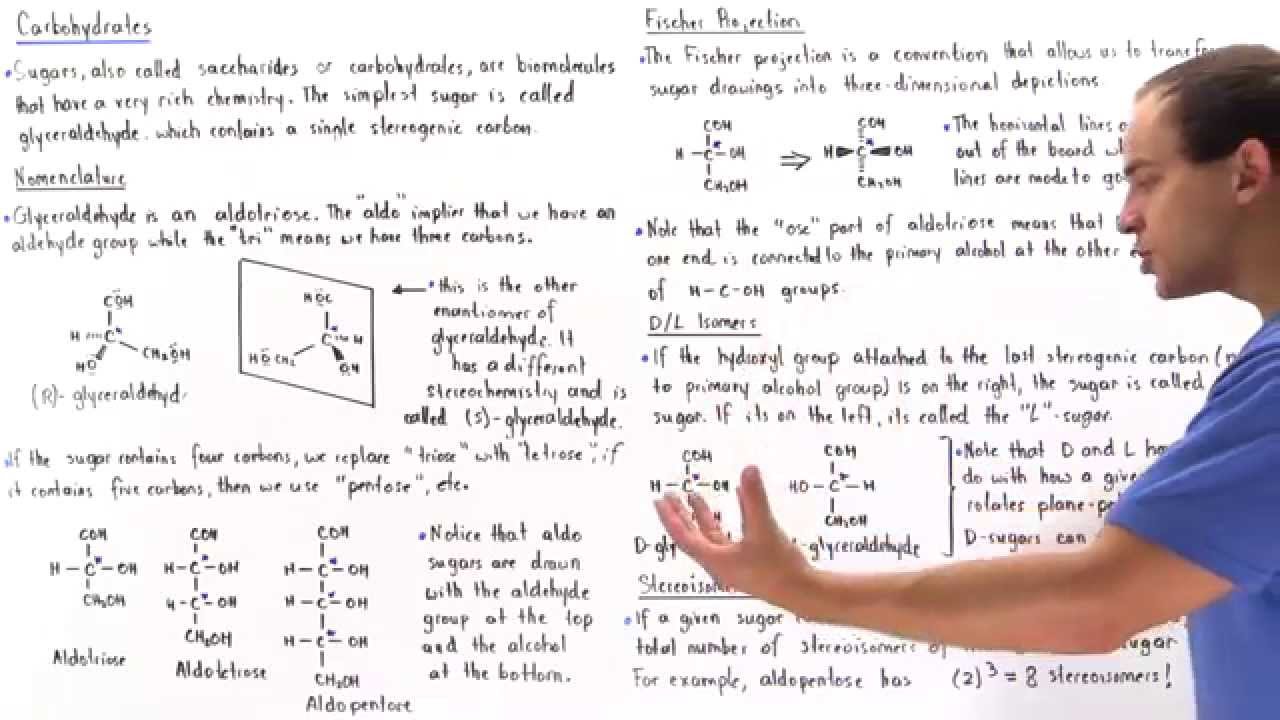 Carbohydrates
• Sugars, also called saccharides or carbohydrates, are biomolecules
that have a very rich chemistry. The simplest sugar is called
glyceraldehyde. which contains a single stereogenic carbon.
Nomenclature
• Glyceraldehyde is an aldotriose. The "aldo" implies that we have an
aldehyde group while the "tri" means we have three carbons.
COH
H C*
HO CH2OH
(R)- glyceraldehyd
HOC
C* H
HOCH2 OH
• this is the other
enantiomer of
glyceraldehyde. It
has a different
stereochemistry and is
called (S)-glyceraldehyde.
• If the sugar contains four carbons, we replace "triose" with "tetrose"; if
it contains five carbons, then we use "pentose", etc.
COH
H-C*-OH
CH2OH
Aldotriose
COH
H-C*-OH
H-C*-OH
CH2OH
Aldotetrose
COH
H-C*-OH
H-C*-OH
H-C*-OH
CH2OH
Aldopentose
• Notice that aldo
sugars are drawn
with the aldehyde
group at the top
and the alcohol
at the bottom.
Fischer Projection
• The Fischer projection is a convention that allows us to transfo
sugar drawings into three-dimensional depictions
COH
H-C*-OH
CH2OH
⇒
COH
H C* OH
CH2OH
• The horizontal lines
out of the board
lines are made to go
• Note that the "ose" part of aldotriose means that
one end is connected to the primary alcohol at the other
of H-C-OH groups.
D/L Isomers
• If the hydroxyl group attached to the last stereogenic carbon
to primary alcohol group) is on the right, the sugar is called
sugar. If its on the left, its called the "L"-sugar.
COH
H-C*-OH
D-gly
COH
HO-C*-H
CH2OH
-glyceraldehyde
• Note that D and L ha
do with how a give
rotates plane-p
D-sugars can
Stereoisom
• If a given sugar
total number of stereoisomers of
For example, aldopentose has (2)3 = 8 stereoisomers!